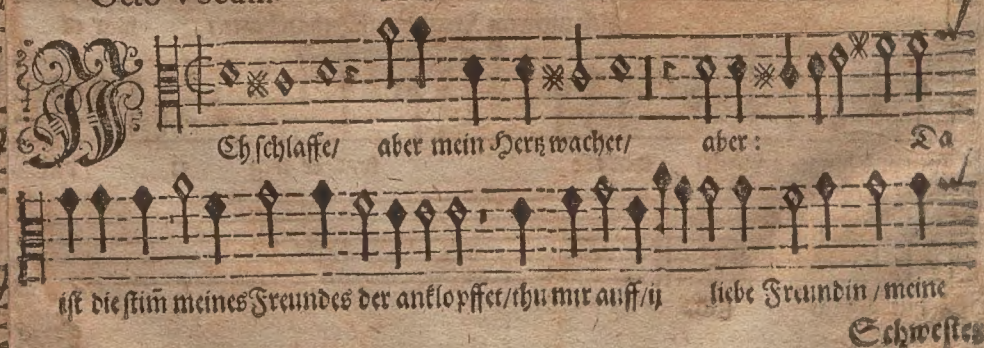 Octo Vocum.
ICh schlaffe/ aber mein Hertz wachet/ aber : Da
ist die stim̃ meines Freundes der anklopffet/thu mir auff/ij liebe Freundin / meine
Schwester